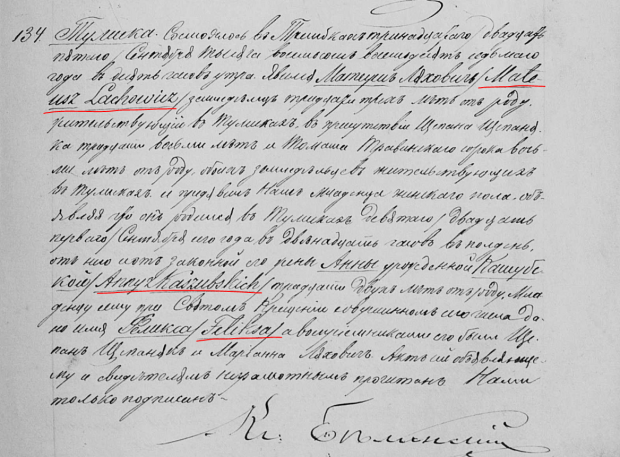 134. Тулиска. Состоялось въ Тулишкахъ тринадцатаго/двадцать
пятаго/ Сентября тысяча восемьсотъ восемьдесятъ седьмаго
года въ девять часовъ утра. Явился Матеушъ Ляховичъ/Mate-
usz Lachowicz/ земледѣлецъ тридцати трехъ лѣтъ отъ роду,
жительствующій въ въ присутствіи Щепана Щепаня-
ка тридцати восьми лѣтъ и Томаша сорока вось-
ми лѣтъ отъ роду, обоихъ земледѣльцевъ жительствующихъ
въ и предъявилъ Намъ младенца женскаго пола, объ-
являя что онъ родился въ девятаго/двадцать
перваго/ Сентября сего года въ двѣнадцать часовъ въ полдень,
отъ него и отъ законной его жены Анны урожденной Кашуб-
ской/Anny z Kaszubskich/ тридцати двухъ лѣтъ отъ роду. Мла-
денцу сему при Святомъ Крещеніи совершенномъ сего числа да-
но имя Феликса/Feliksa/ а воспріемниками его были Ще-
панъ Щепанякъ и Маріанна Ляховичъ. Актъ сей объявляюще-
му и свидѣтелямъ неграмотнымъ прочитанъ Нами
только подписанъ.
Кс.